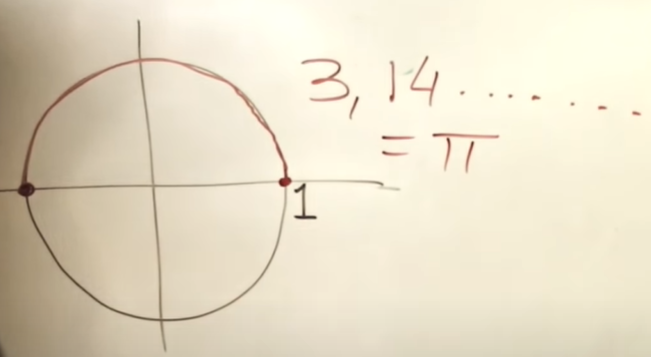 3,14........
= π
1